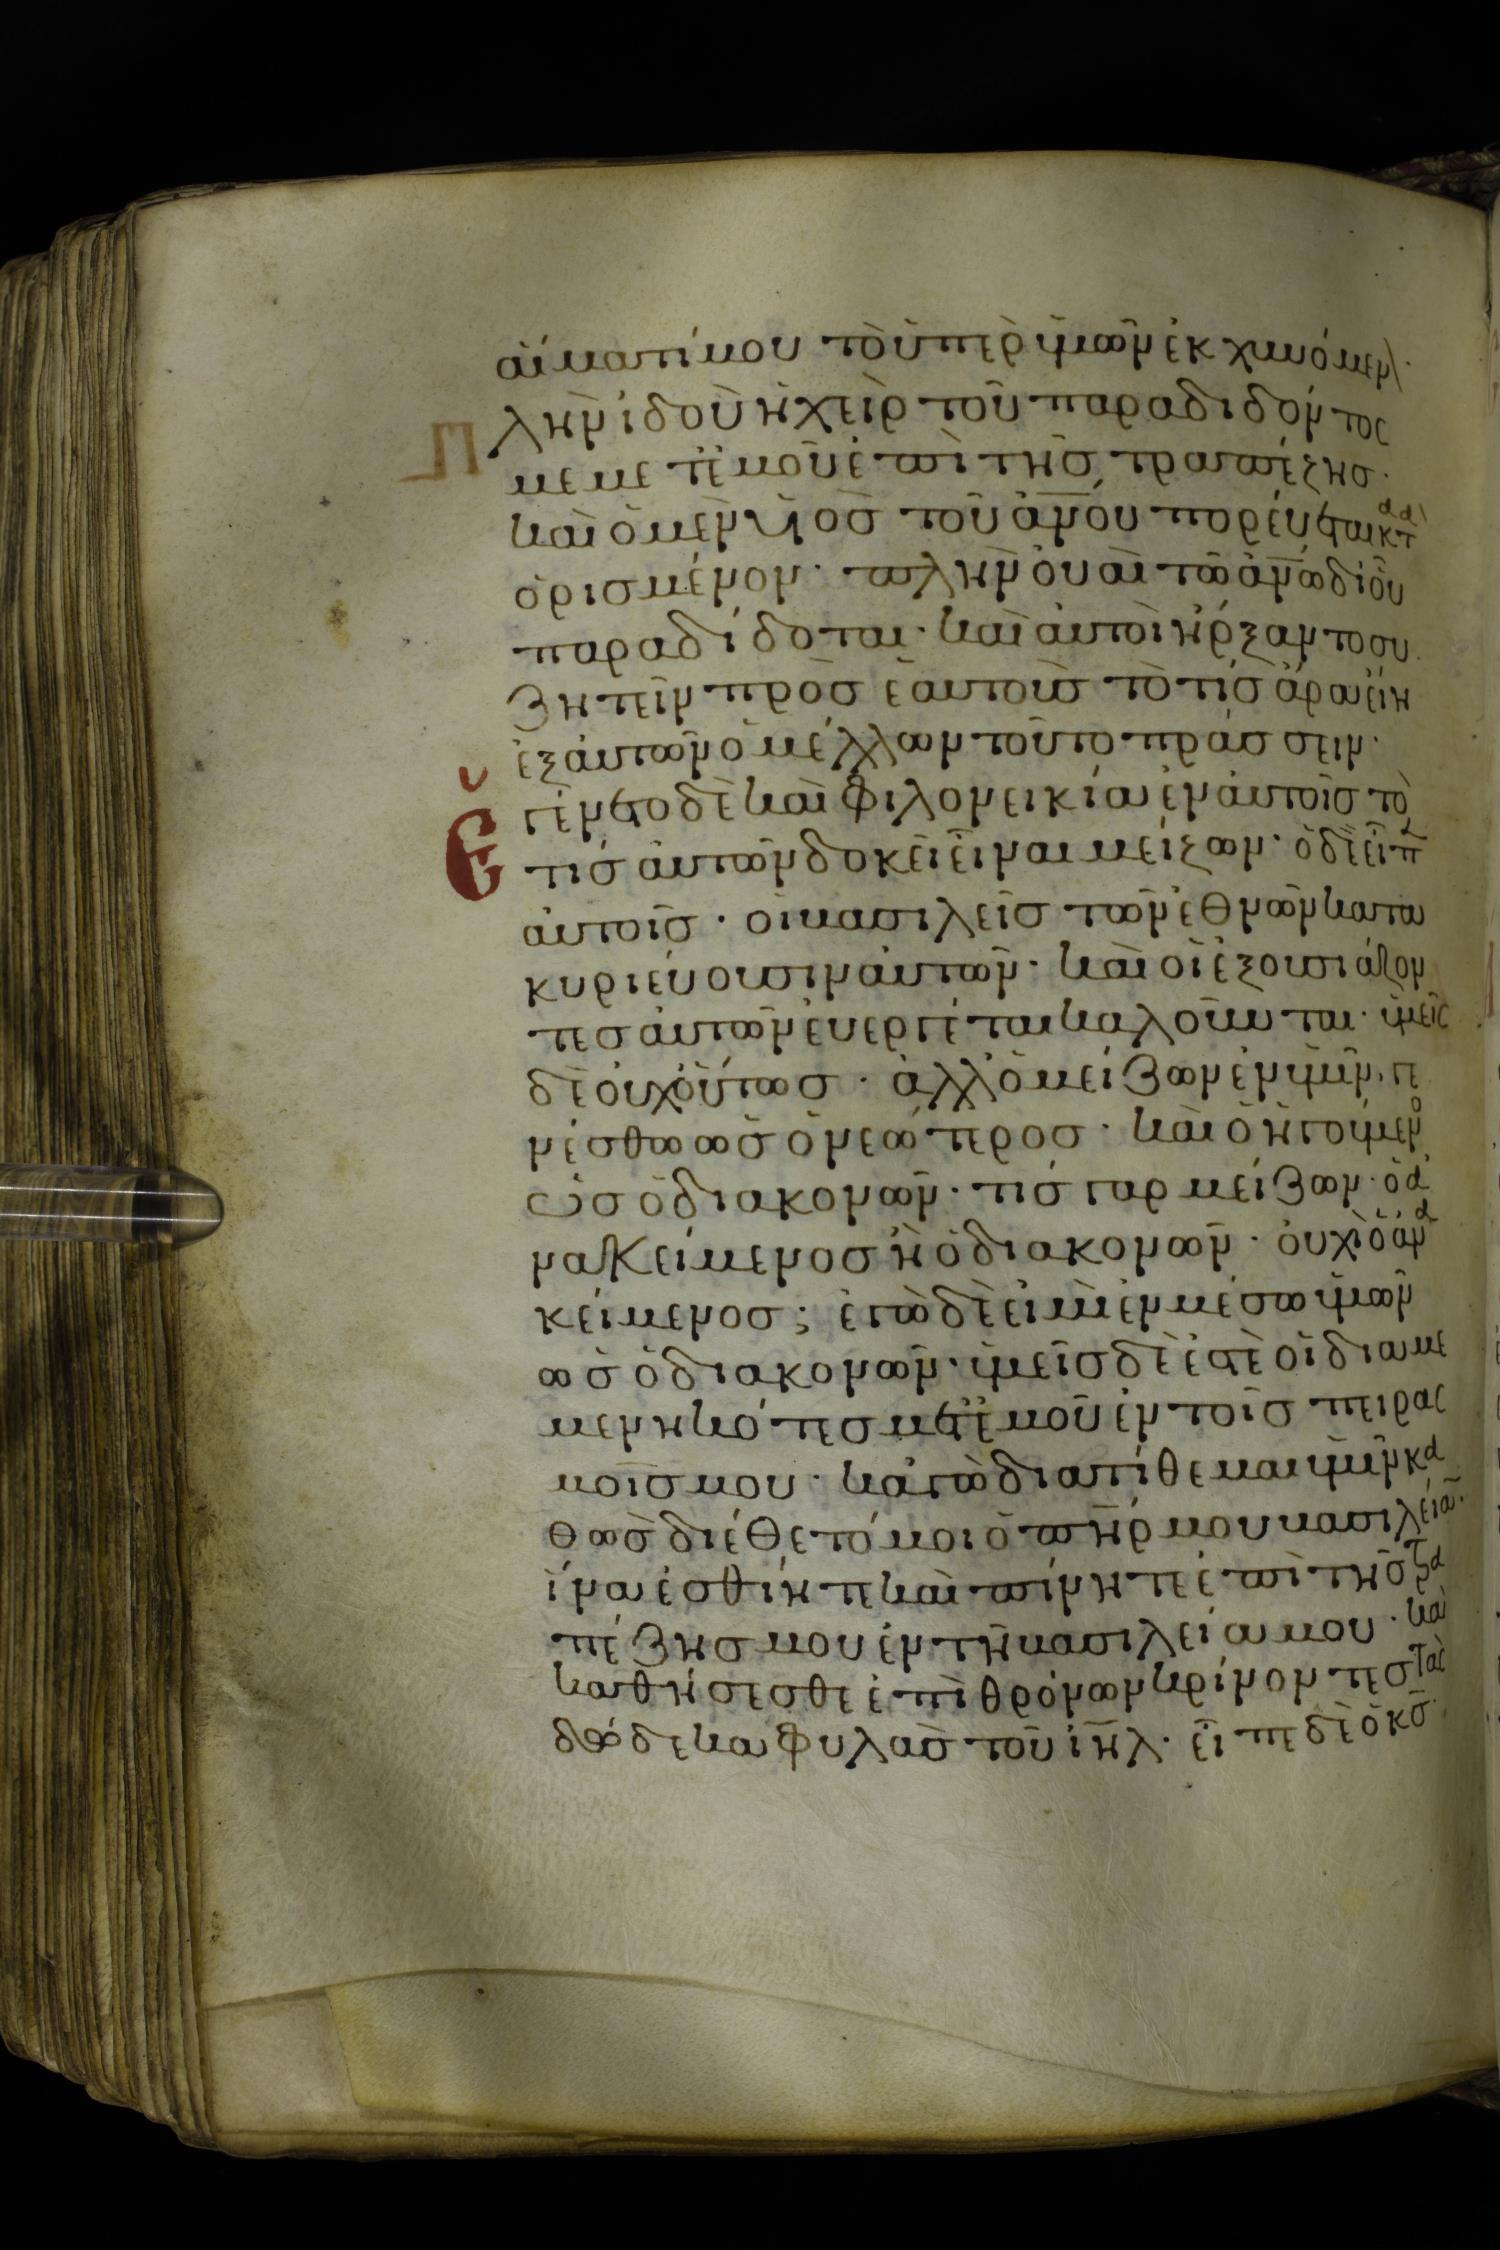 αἵματί μου τὸ ὑπὲρ ὑμῶν ἐκχυνόμεν
Πλὴν ἰδοὺ ἡ χεὶρ τοῦ παραδιδόντος
με μετ' ἐμοῦ ἐπὶ τῆς τραπέζης·
καὶ ὁ μὲν υἱὸς τοῦ ἀνου πορεύεται κτ
ὁρισμένον· πλὴν οὐαὶ τῶ ἀνω δι' οὗ
παραδίδοται· καὶ αὐτοὶ ἤρξαντο συ
ζητεῖν πρὸς ἑαυτοὺς τὸ τίς ἄρα εἴη
ἐξ αὐτῶν ὁ μέλλων τοῦτο πράσσειν·
Ἐγένετο δὲ καὶ φιλονεικία ἐν αὐτοῖς τὸ
τίς αὐτῶν δοκεῖ εἶναι μείζων· ὁ δὲ εἶπ
αὐτοῖς· οἱ βασιλεῖς τῶν ἐθνῶν κατα
κυριεύουσιν αὐτῶν· καὶ οἱ ἐξουσιάζον
τες αὐτῶν ἐυεργέται καλοῦνται· ὑμεῖς
δὲ οὐχ οὕτως· ἀλλ' ὁ μείζων ἐν ὑμῖν, γε
νέσθω ὡς ὁ νεώτερος· καὶ ὁ ἡγούμενο
ὡς ὁ διακονῶν· τίς γαρ μείζων· ὁ ἀ
νακείμενος ἢ ὁ διακονῶν· οὐχὶ ὁ ἀνα
κείμενος; ἐγὼ δὲ εἰμὶ ἐν μέσω ὑμῶν
ὡς ὁ διακονῶν· ὑμεῖς δὲ ἐστὲ οἱ διαμε
μενηκότες μετ' ἐμοῦ ἐν τοῖς πειρας
μοῖς μου· κἀγὼ διατίθεμαι ὑμῖν κα
θὼς διέθετό μοι ὁ πηρ μου βασιλείαν·
ἵνα ἐσθίητε καὶ πίνητε ἐπὶ τῆς τρα
πέζης μου ἐν τῆ βασιλεία μου· καὶ
καθήσεσθε ἐπὶ θρόνων κρίνοντες τὰς
δώδεκα φυλὰς τοῦ ιηλ· εἶπε δὲ ὁ κς·